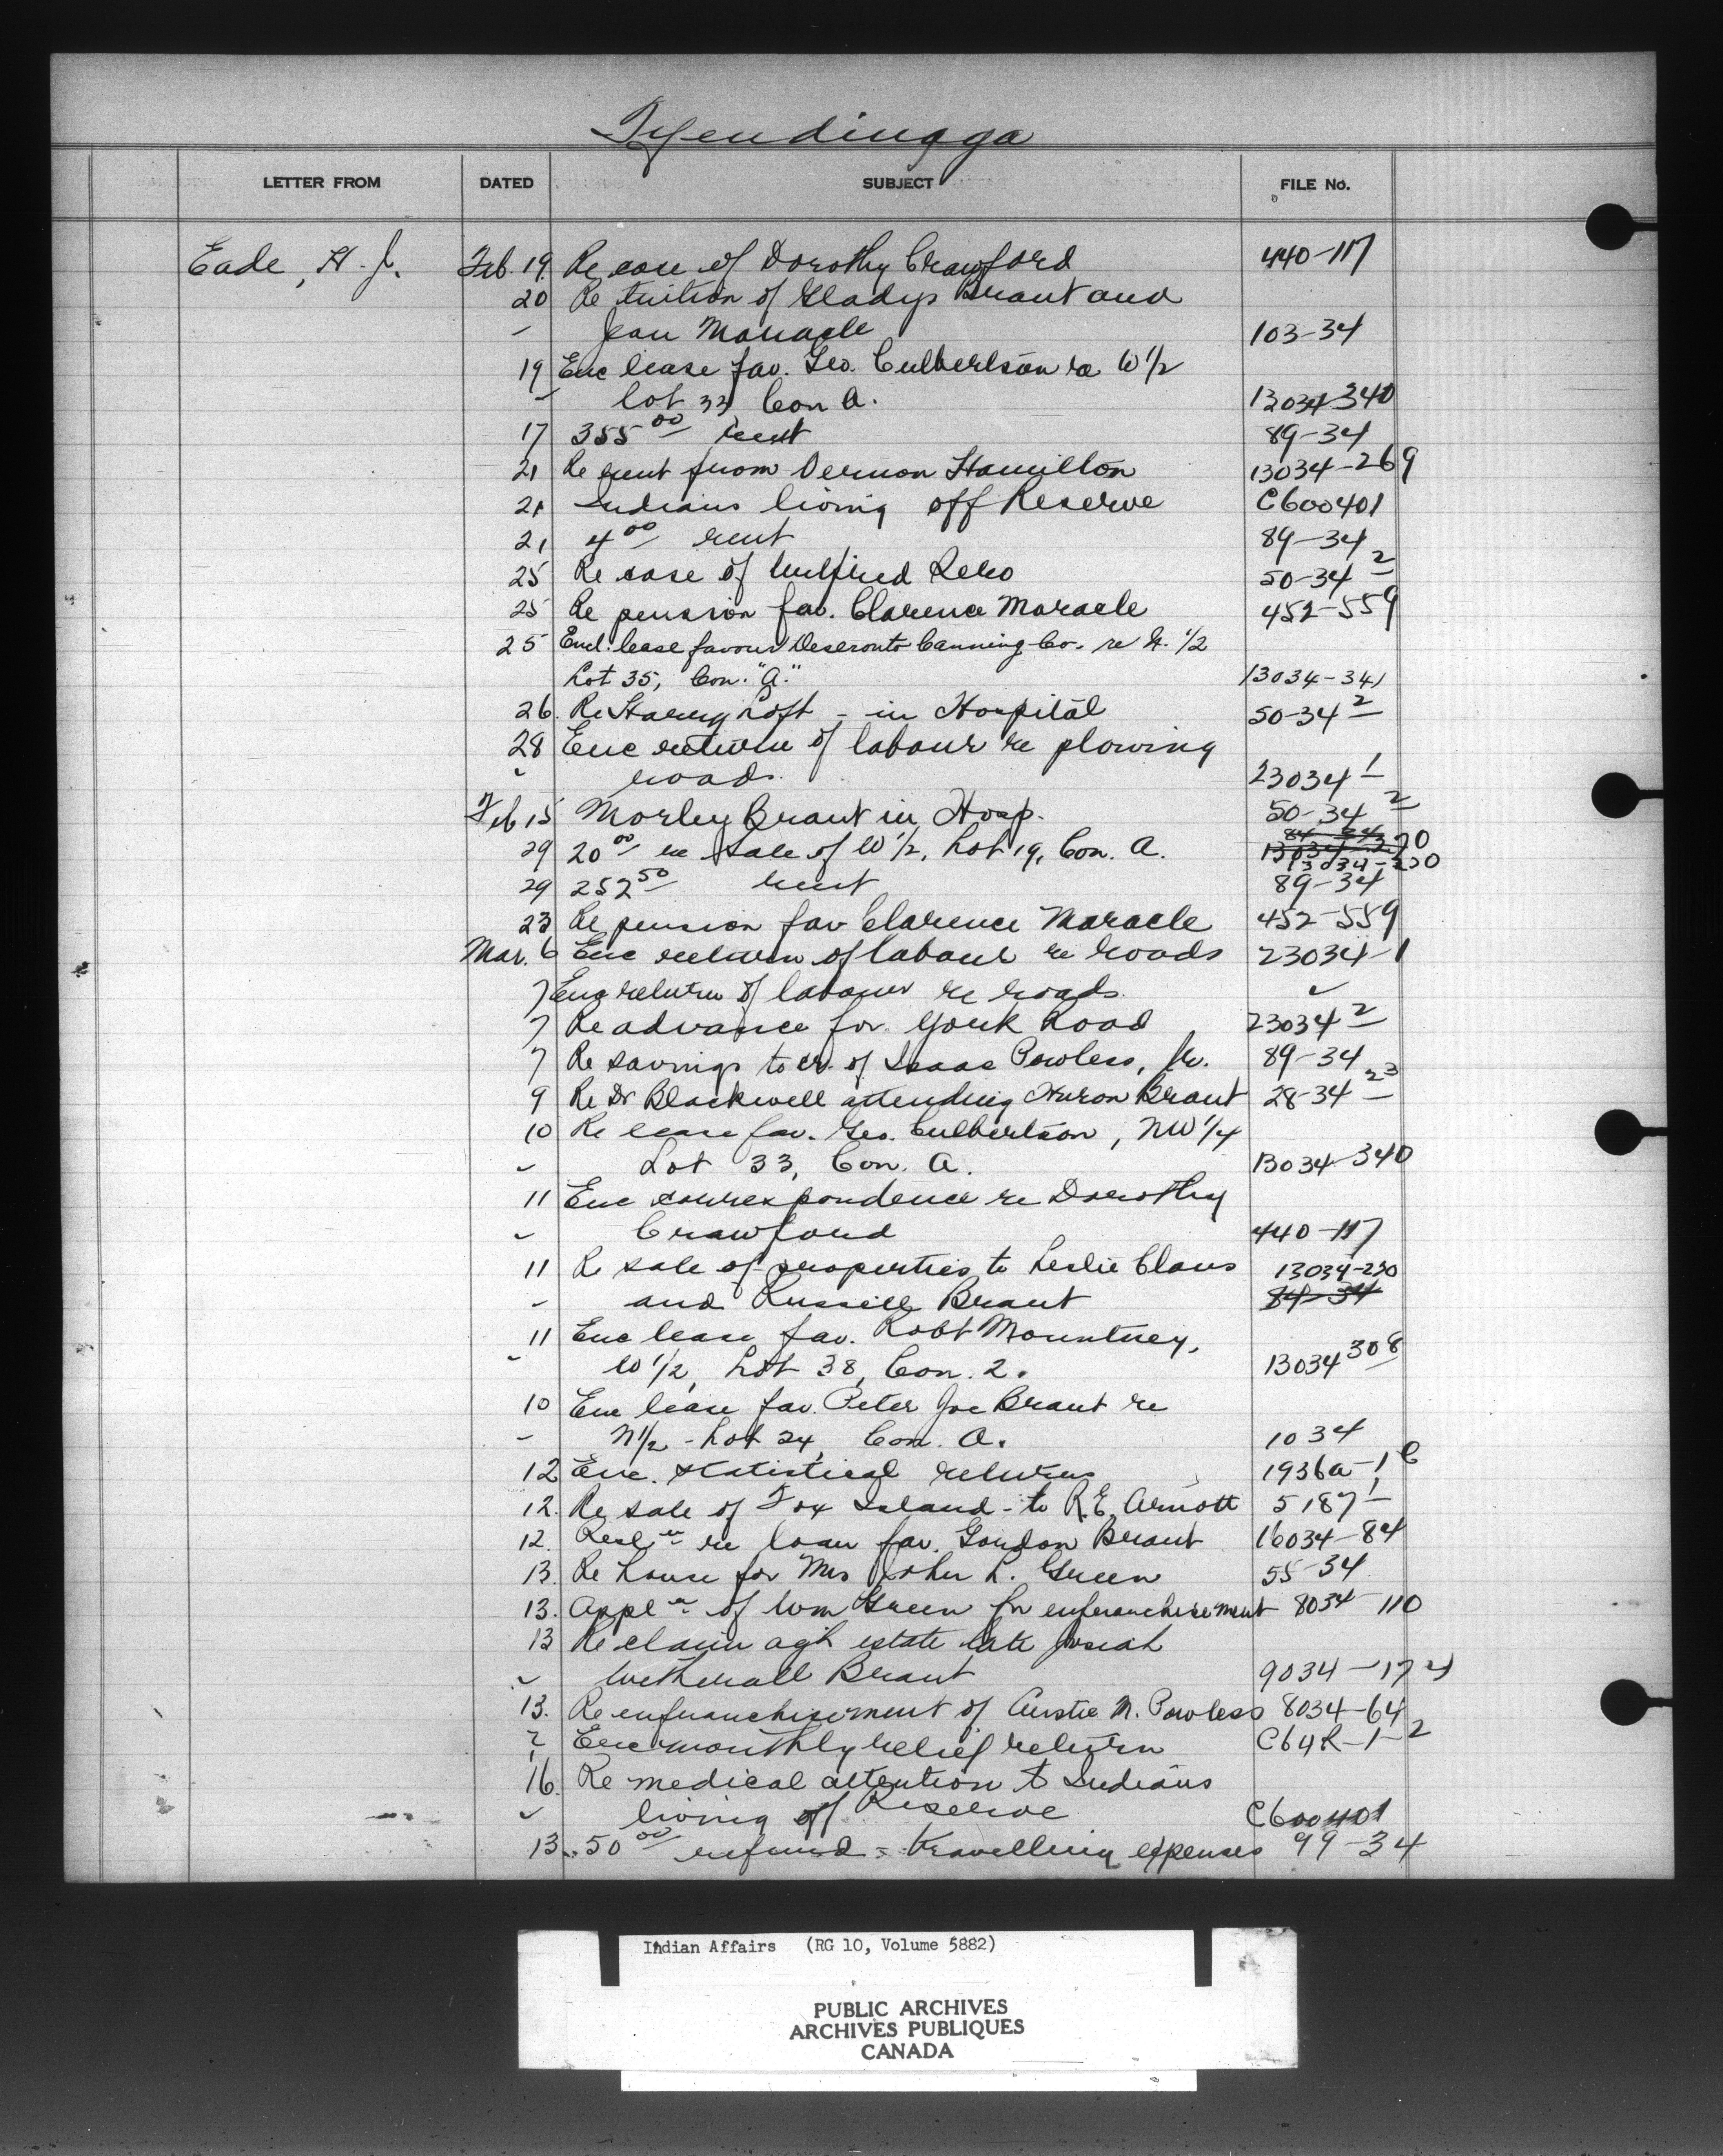 Tyendinaga
LETTER FROM DATED SUBJECT FILE No.
Eade, H. J. Feb. 19 Re case of Dorothy Crawford 440-117
20 Re tuition of Gladys Brant and
" Jean Maracle 103-34
19 Enc lease fav. Geo. Culbertson re W 1/2
" lot 33, Con A. 13034-340
17 355 00 rent 89-34
21 Re rent from Vernon Hamilton 13034-269
21 Indians living off Reserve C600401
21 4 00 rent 89-34
25 Re case of Wilfred 50-34 2
25 Re pension fav. Clarence Maracle 452-559
25 Encl. lease favour Deseronto Canning Co. re 1/2
Lot 35, Con. "A." 13034-341
26. Re Harvey Loft - in Hospital 50-34 2
28 Enc return of labour re plowing
" roads. 23034 1
Feb 15 Morley Brant in Hosp. 50-34 2
29 20 00 re sale of W 1/2, Lot 19, Con. A. 13034-220
29 252 50 rent 89-34
23 Re pension fav Clarence Maracle 452-559
Mar. 6 Enc return of labour re roads 23034-1
7 Enc return of labour re roads. "
7 Re advance for York Road 23034 2
7 Re savings to cr. of Isaac Powless, Jr. 89-34
9 Re Dr Blackwell attending Huron Brant 28-34 23
10 Re lease fav. Geo. Culbertson, NW 1/4
" Lot 33, Con. A. 13034-340
11 Enc correspondence re Dorothy
" Crawford 440-117
11 Re sale of properties to Leslie Claus 13034-220
" and Russell Brant 84-34
11 Enc lease fav. Robt Mountney,
" W 1/2, Lot 38, Con. 2. 13034 308
10 Enc lease fav. Peter Joe Brant re
" N 1/2 - Lot 24, Con. A. 1034
12 Enc. statistical returns 1936a-1 C
12. Re sale of Fox Island - to R.E. Arnott 5187 1
12. Resl n re loan fav. Gordon Brant 16034-84
13. Re house for Mrs John L. Green 55-34
13. Appl n of Wm Green for enfranchisement 8034-110
13 Re claim agst estate late Josiah
" Wetherall Brant 9034-174
13. Re enfranchisement of M. Powless 8034-64
? Enc monthly relief return C64R-1-2
16. Re medical attention to Indians
" living off Reserve C600401
13. 50 00 refund - travelling expenses 99-34
Indian Affairs (RG 10, Volume 5882)
PUBLIC ARCHIVES
ARCHIVES PUBLIQUES
CANADA